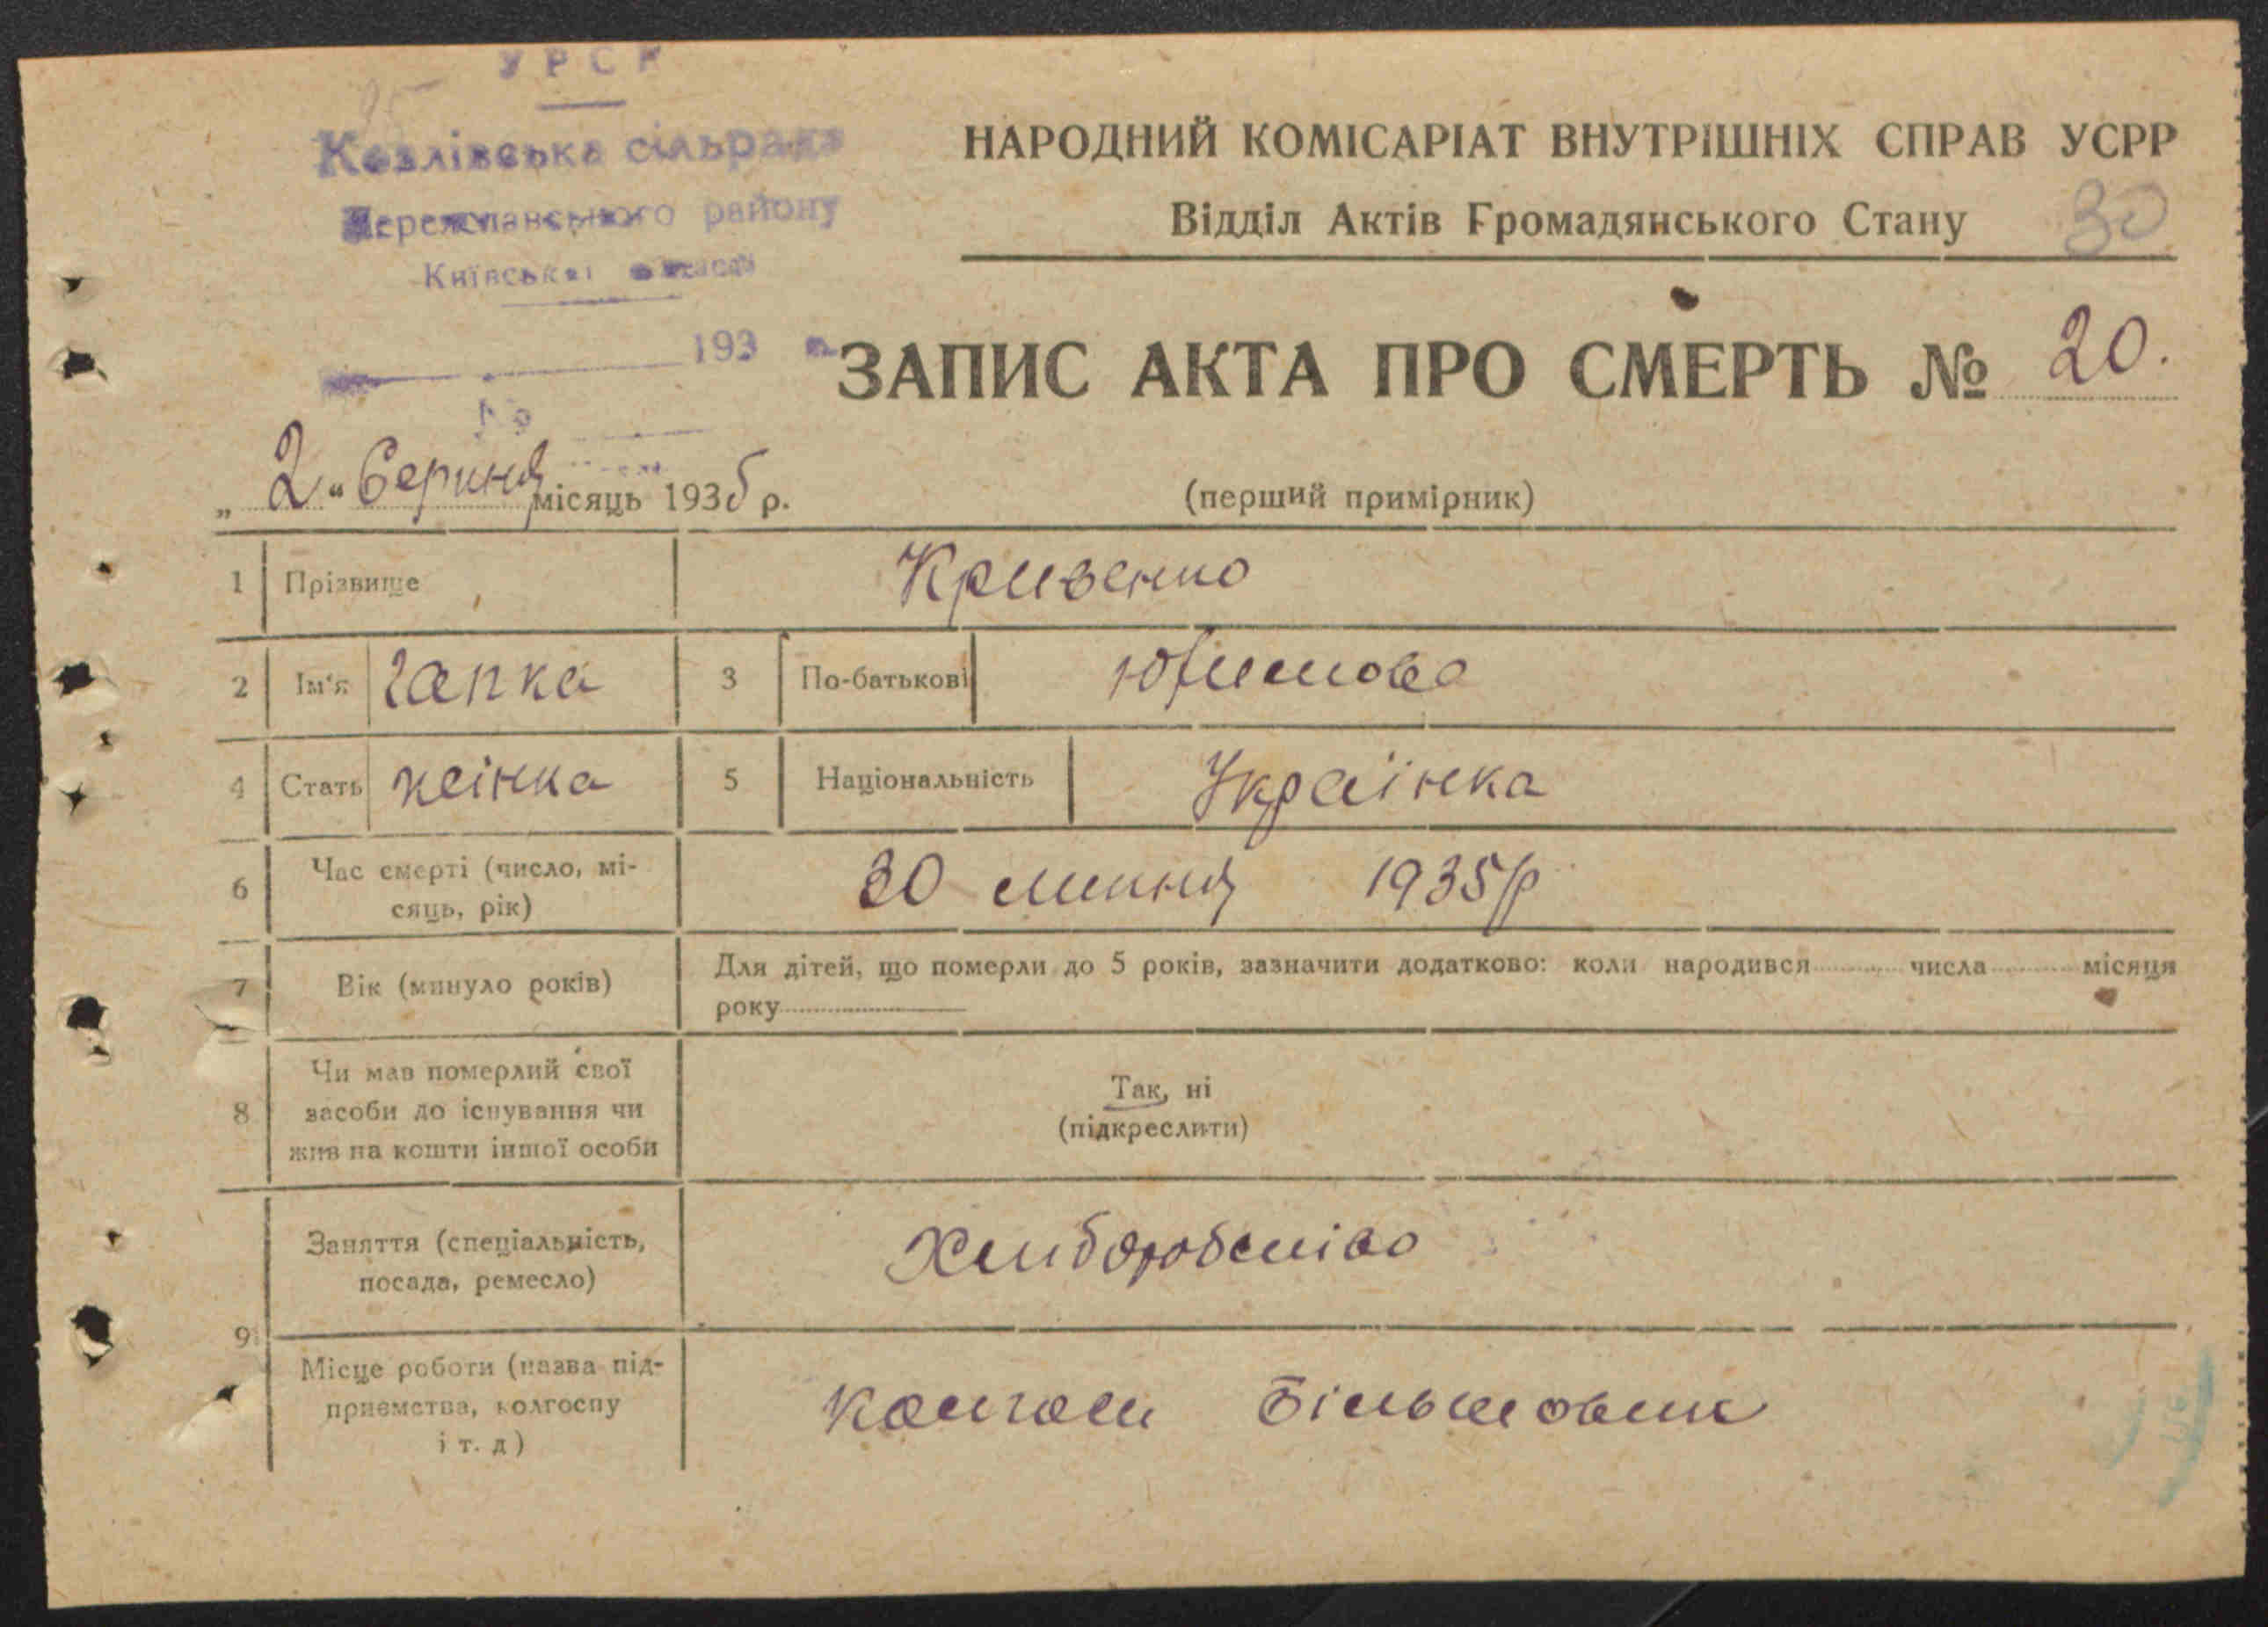 УРСР
Козлівська сільрада
Переяславського району
Київської області
193
НАРОДНИЙ КОМІСАРІАТ ВНУТРІШНІХ СПРАВ УСРР
Відділ Актів Громадянського Стану
30
ЗАПИС АКТА ПРО СМЕРТЬ № 20.
„ 2 “ Серпня місяць 1935 р.
(перший примірник)
1 Прізвище Кривенко
2 Ім'я Гапка 3 По-батькові Юхимова
4 Стать жінка 5 Національність Українка
6 Час смерті (число, мі-
сяць, рік) 30 липня 1935р
7 Вік (минуло років) Для дітей, що померли до 5 років, зазначити додатково: коли народився числа місяця
року
8 Чи мав померлий свої
засоби до існування чи
жив на кошти іншої особи
Так, ні
(підкреслити)
9 Заняття (спеціальність,
посада, ремесло)
Місце роботи (назва під-
приємства, колгоспу
і т. д)
Більшовик